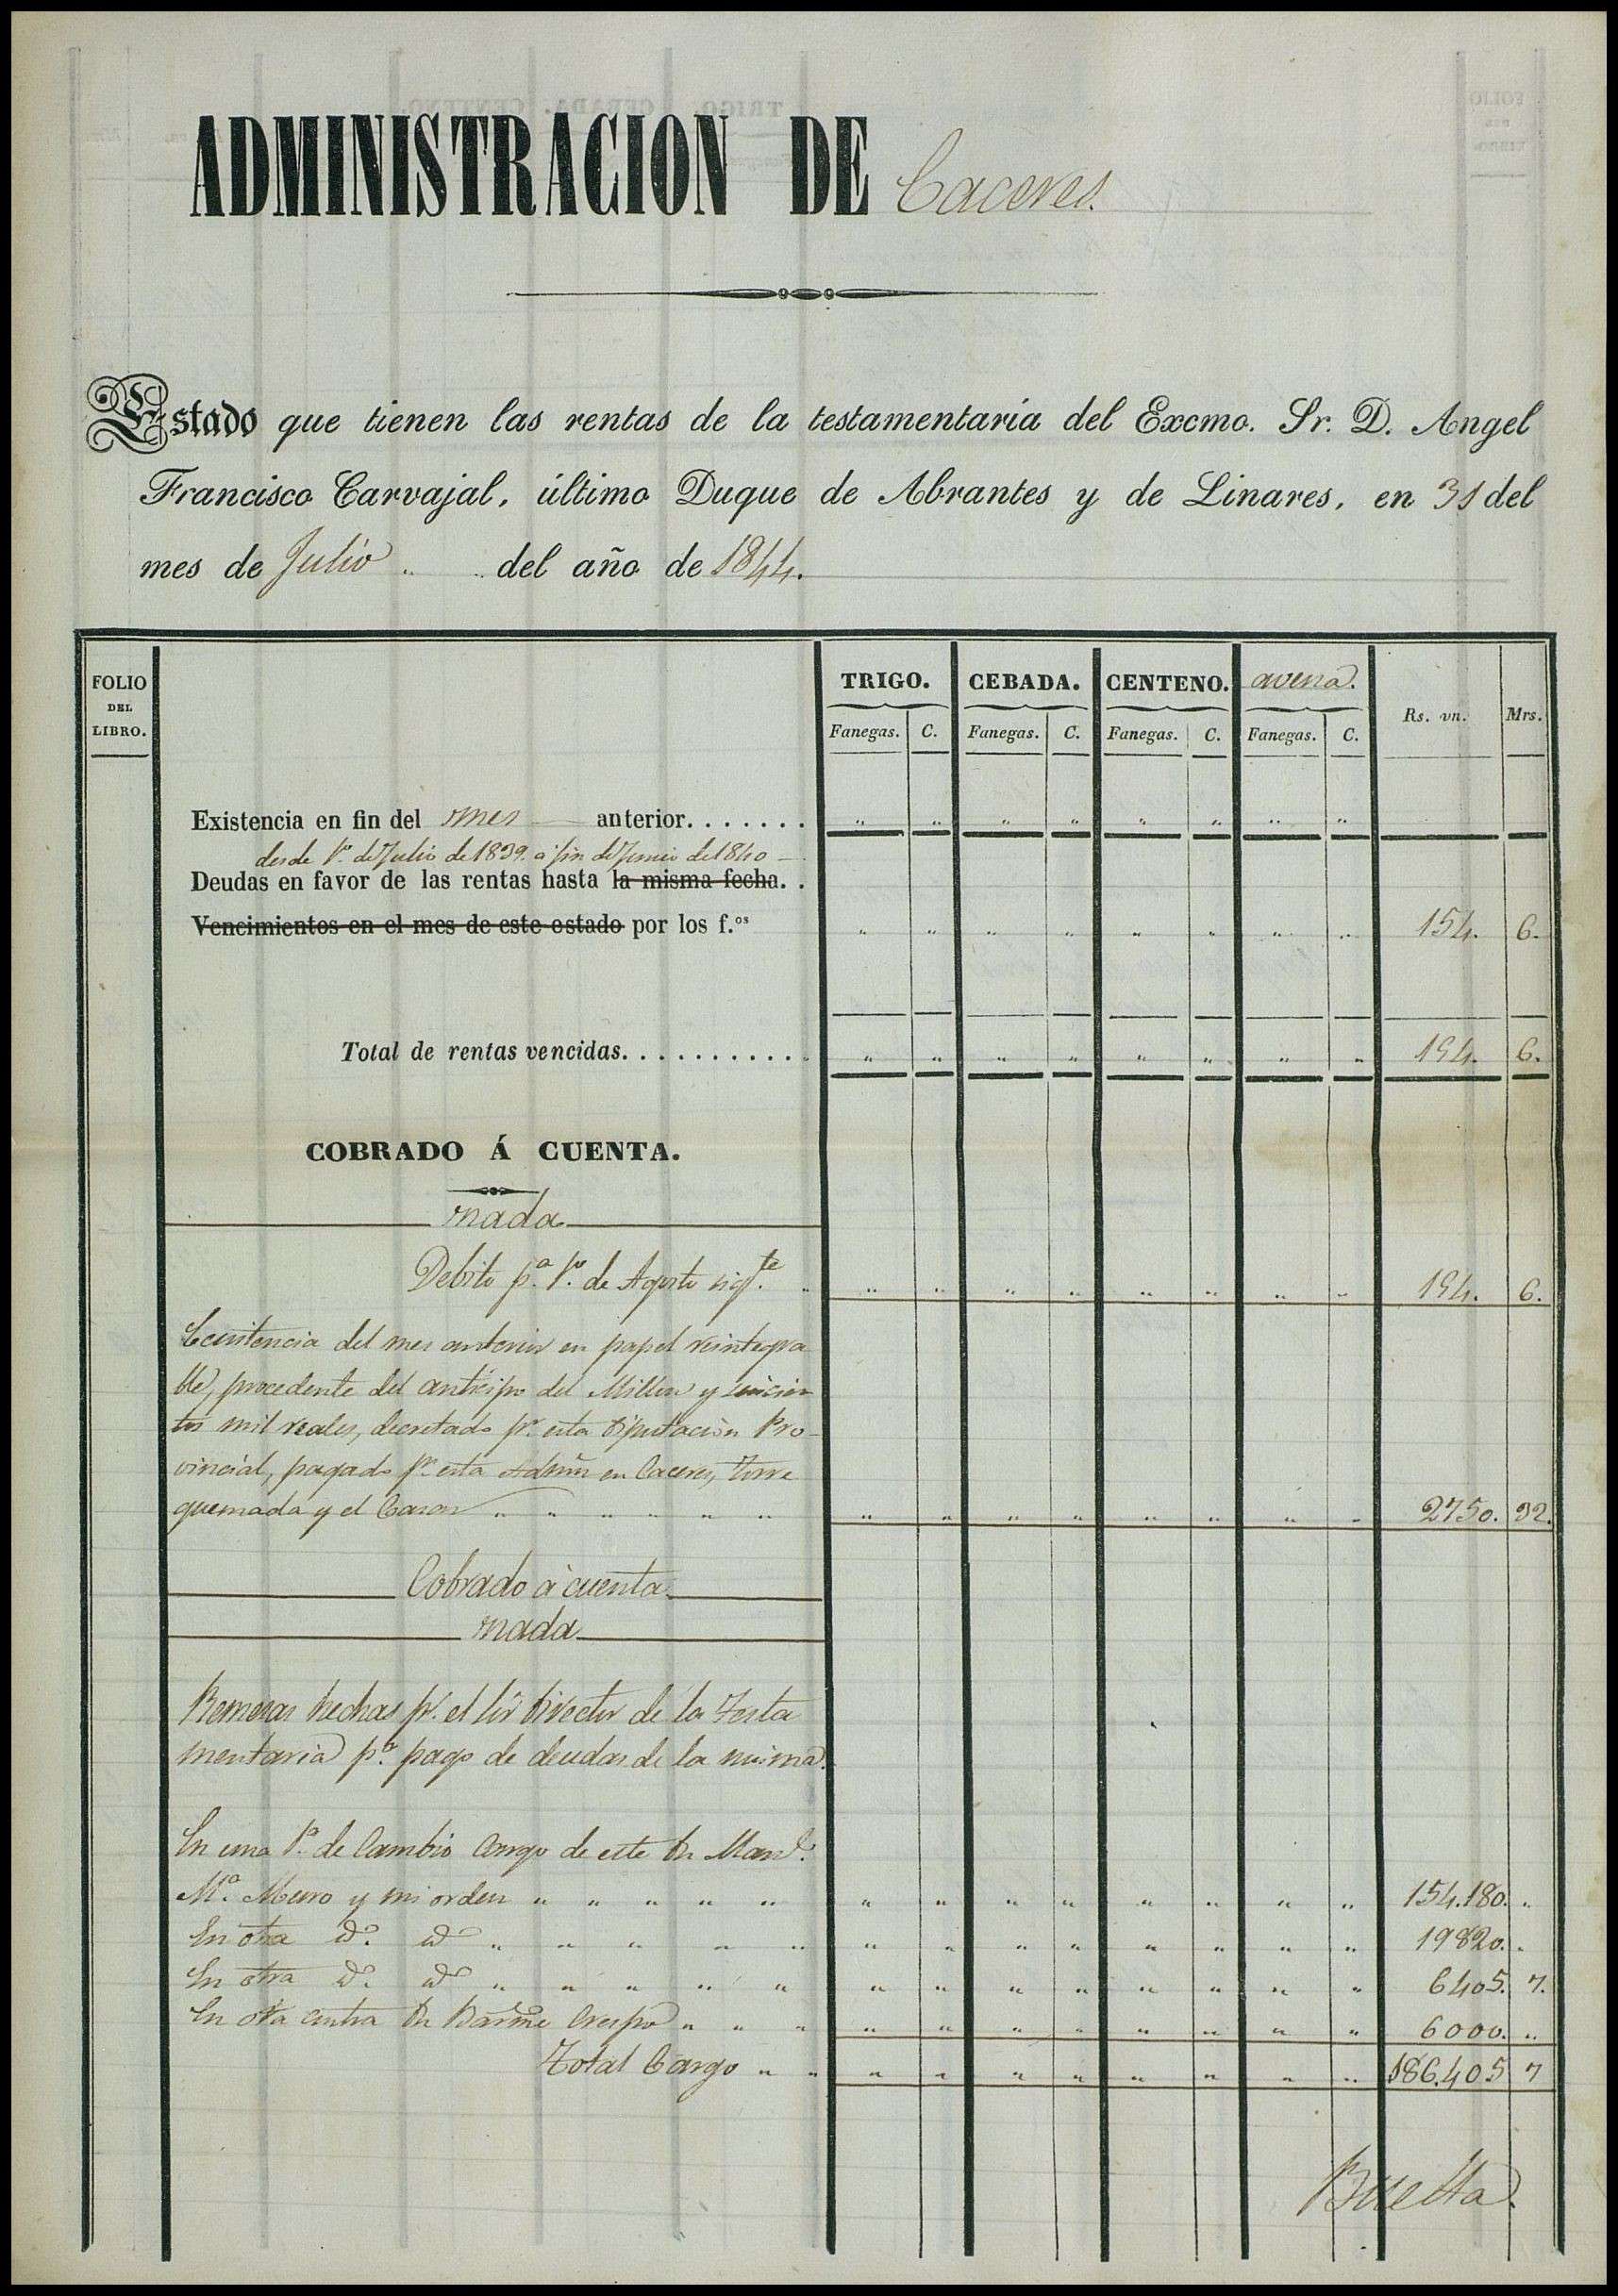 ADMINISTRACION DE Caceres.
Estado que tienen las rentas de la testamentaria del Excmo. Sr. D. Angel
Francisco Carvajal, último Duque de Abrantes y de Linares, en 31 del
mes de Julio " " del año de 1844.
FOLIO DEL LIBRO.
TRIGO. CEBADA. CENTENO. avena.
Fanegas. C. Fanegas. C. Fanegas. C. Fanegas. C. Rs. vn. Mrs.
Existencia en fin del mes anterior. . . . . . . " " " " " " " "
desde 1º de Julio de 1839 a fin de Junio del 840
Deudas en favor de las rentas hasta la misma fecha. .
Vencimientos en el mes de este estado por los f.os " " " " " " " " 154. 6.
Total de rentas vencidas. . . . . . . . . . . " " " " " " " " 154. 6.
COBRADO Á CUENTA.
nada
Debito p.ª 1º de Agosto sig.te " " " " " " " " " 154. 6.
Ecsistencia del mes anterior en papel reintegra
ble, procedente del anticipo del Millon y
tos mil reales, decretado pr. esta Diputación Pro-
vincial, pagado pr. esta Admon en Caceres, Torre
quemada y el Casar " " " " " " " " " " " " " " 2750. 32.
Cobrado à cuenta
nada
Remesas hechas pr. el Sor. Director de la Testa
mentaria pª pago de deudas de la misma.
En una 1ª de Cambio Cargo de este Dn Man.l
Mª Muro y mi orden " " " " " " " " " " " " " 154.180. "
En otra id. id " " " " " " " " " " " " " 19820. "
En otra id. id " " " " " " " " " " " " " 6405. 7.
En otra contra Dn Barme Crespo " " " " " " " " " " " 6000. "
Total Cargo " " " " " " " " " " 186.405 7
Buelta.